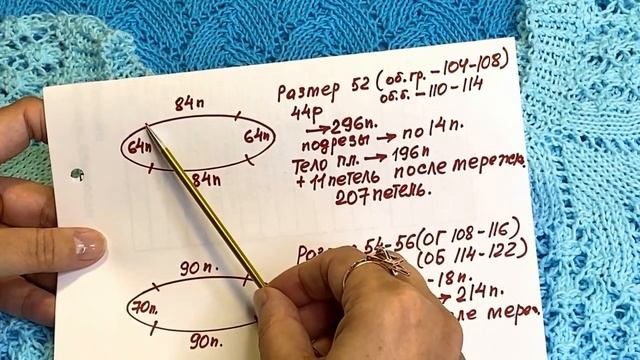 84п
64п
64п
84п
Размер 52 (об.гр. -104-108)
об.б. -110-114
44р
→296п.
подрезы → по 14п.
Тело пл. → 196п
+ 11 петель после мережк.
207 петель.
90п.
70п.
90п.
54-56 (ОГ 108-116)
(ОБ 114-122)
-18п.
→ 214п.